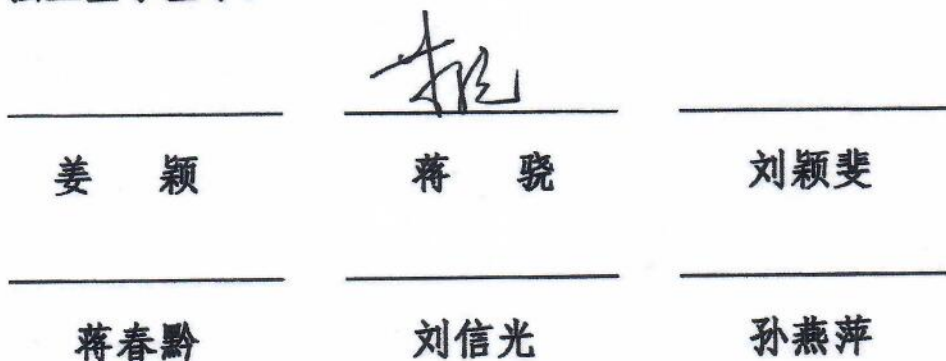 姜 颖 蒋 骁 刘颖斐
蒋春黔 刘信光 孙燕萍